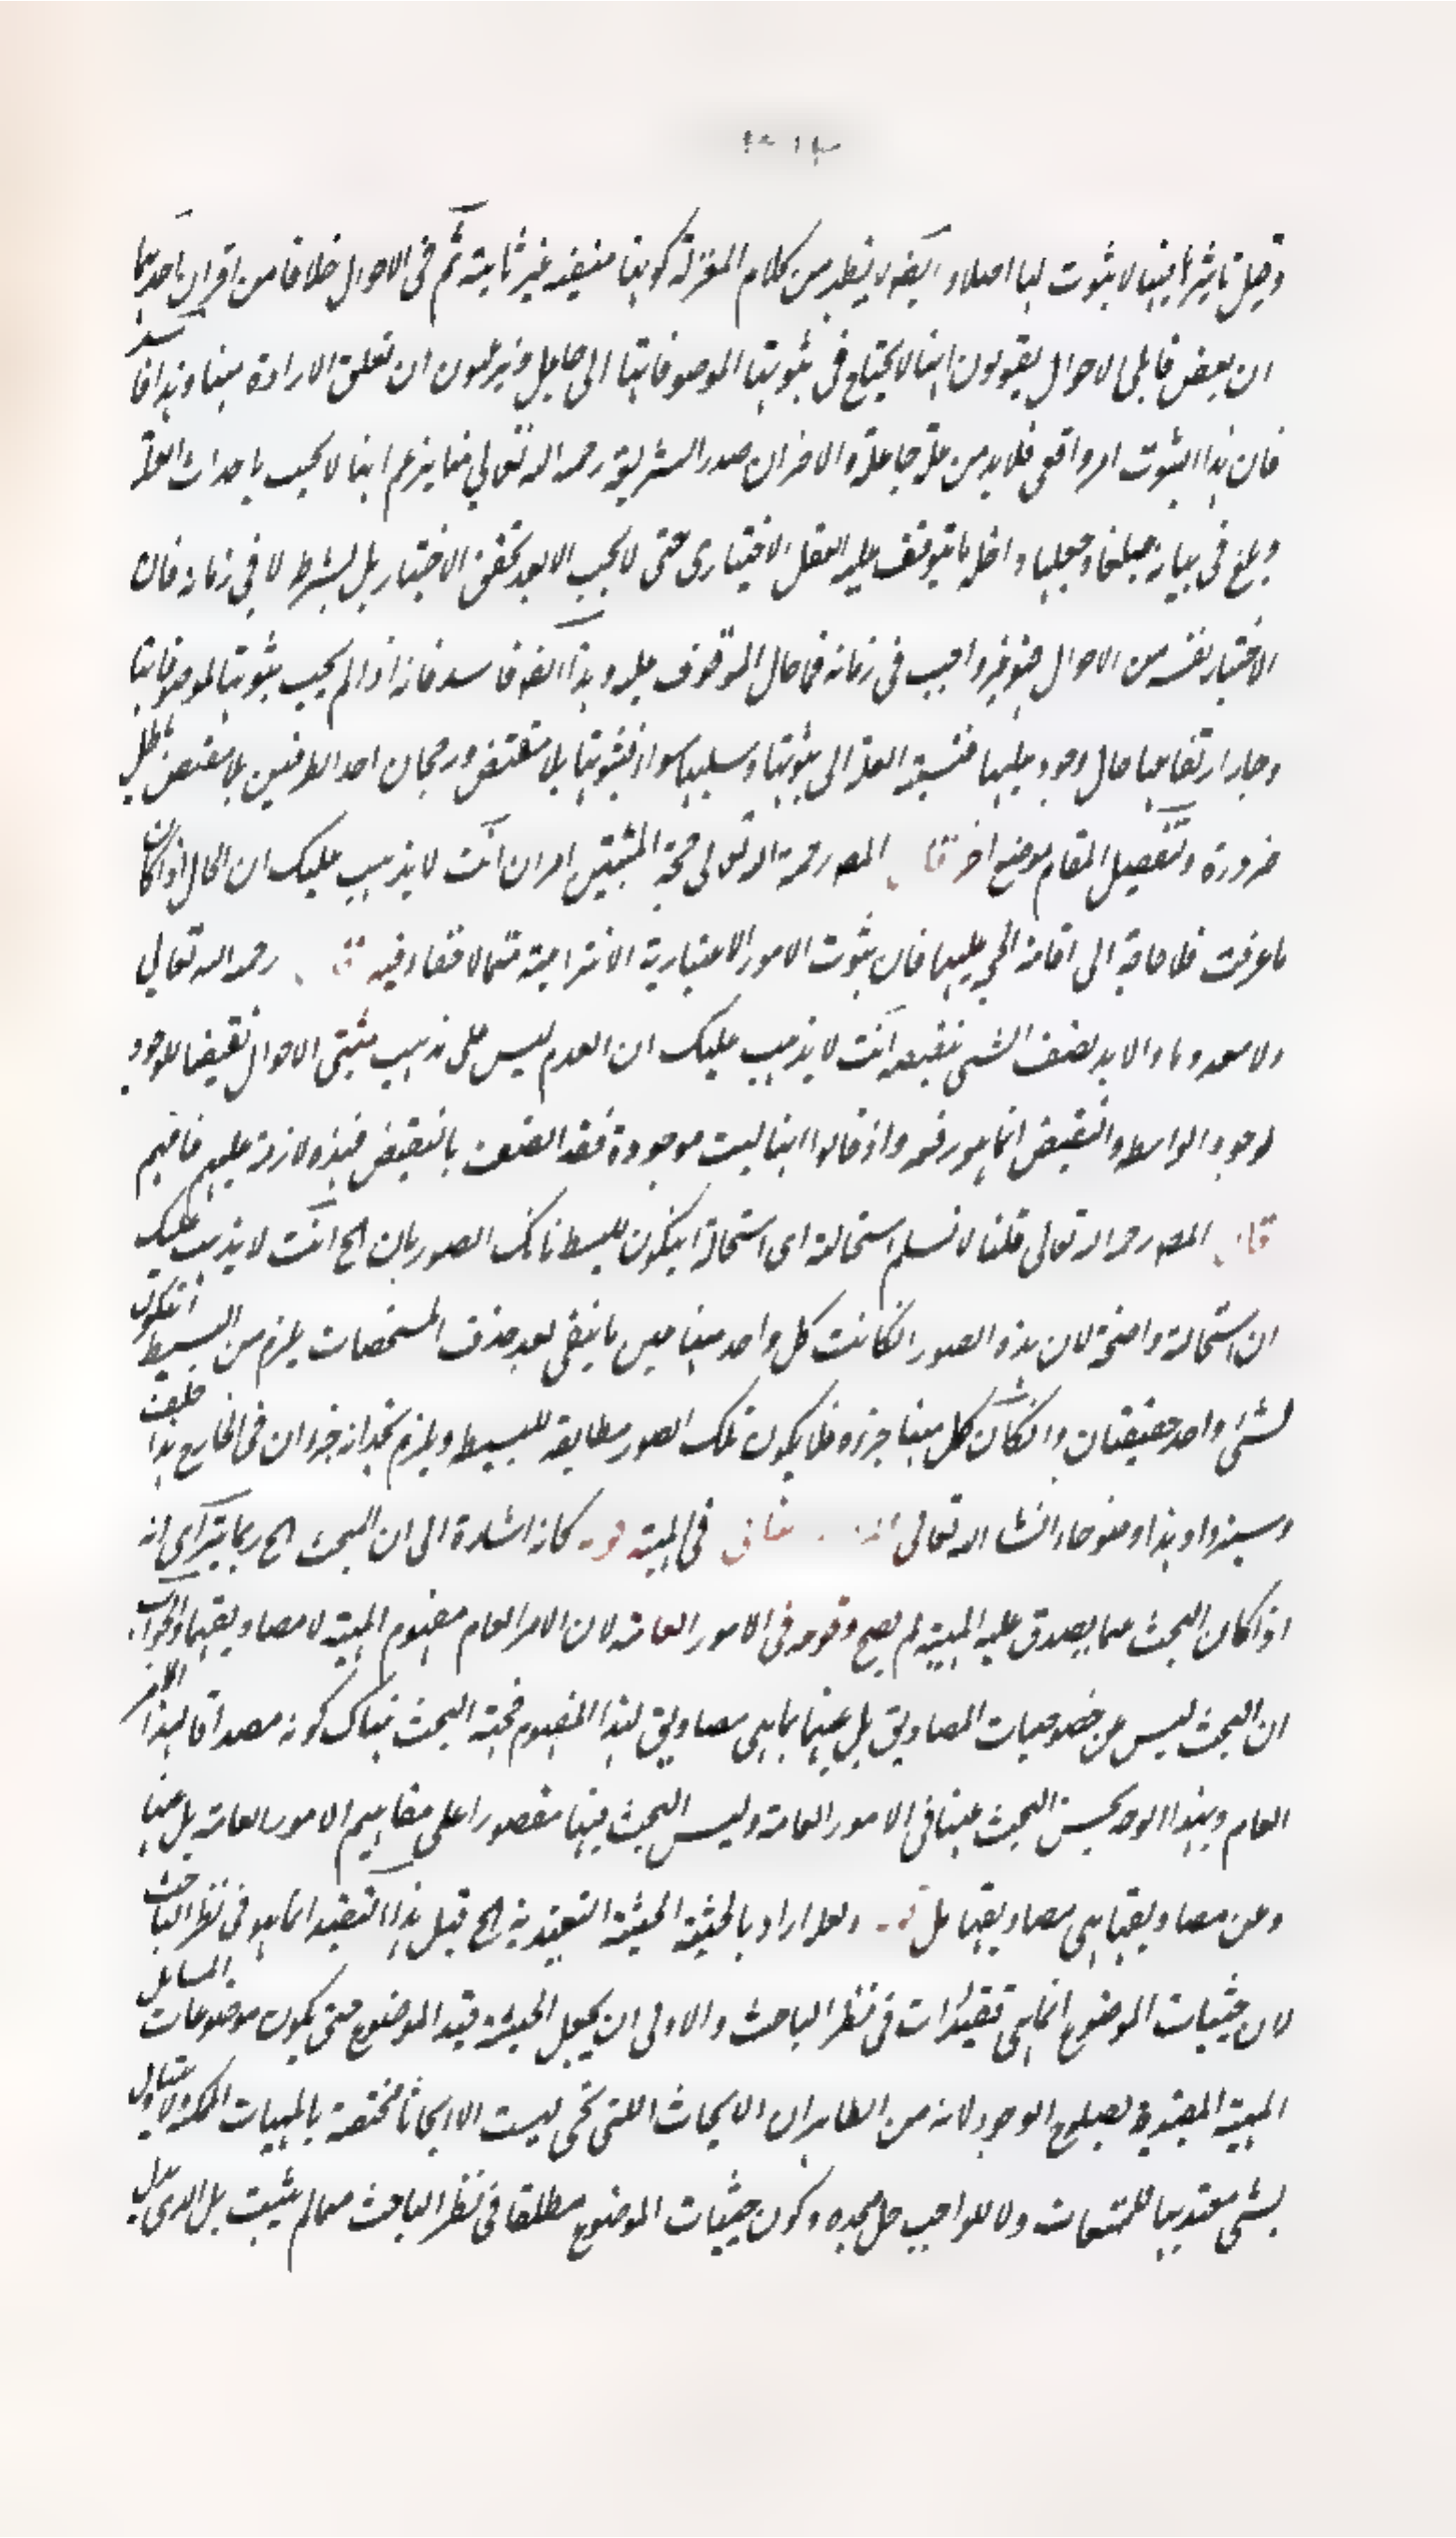 وقبل تأثيرها فيها لا ثبوت لها اصلا و ايضا لا يظهر من كلام المعتزلة كونها منفية غير ثابتة ثم فى الاحوال خلافا من اقرال باحديهما
ان بعض قايلى الاحوال يقولون انها لا يحتاج فى ثبوتها الموصوفاتها الى جاعل ويزعمون ان تعلق الارادة منها وهذا فاسد
فان هذا الثبوت امر واقعى فلا بد من علة جاعلة والاخر ان صدر الشريعة رحمه الله تعالى منا يزعم انها لا يجب باحداث العلة
وبلغ فى بيانه مبلغا وجعلها داخلة ما يتوقف عليه الفعل الاختيارى حتى لا يجب الا بعد تحقق الاختيار بل بشرط لا فى زمانه فان
الاختيار نفسه من الاحوال فهو غير واجب فى زمانه فما حال الموقوف عليه وهذا ايضا فاسد فانه اذا لم يجب ثبوتها لموصوفاتها
وجاز ارتفاعها حال وجود علتها فنسبة العلة الى ثبوتها وسلبها سواء فثبوتها بلا مقتض ورجحان احد الطرفين بلا مقتض باطل
ضرورة وتفصيل المقام موضع اخر قال المصـ رحمة الله تعالى حجة المثبتين امران انت لا يذهب عليك ان الحال اذا كان
ما عرفت فلا حاجة الى اقامة الحجة عليها فان ثبوت الامور الاعتبارية الانتزاعية مما لا خفاء فيه قال رحمه الله تعالى
ولا معدوما والا يصف الشى بنقيضه انت لا يذهب عليك ان العدم ليس على مذهب مثبتى الاحوال نقيضا للوجود
لوجود الواسطة والنقيض انما هو رفعه واذ قالوا انها ليست موجودة فقد اتصف بالنقيض فهذه لازمة عليهم فافهم
قال المصـ رحمه الله تعالى قلنا لا نسلم استحالته اى استحالة ان يكون للبسيط تانك الصورتان الخ انت لا يذهب عليك
ان استحالته واضحة لان هذه الصور ان كانت كل واحد منها عين ما يبقى بعد حذف المشخصات يلزم من البسيط ان تكون
لشئ واحد حقيقتان وان كان كل منها جزءه فلا يكون تلك الصور مطابقة للبسيط ويلزم تحقق انه جزءان فى الخارج هذا خلف
وسيزداد هذا وضوحا انشاء الله تعالى فى المهية قوله كانه اشارة الى ان البحث الخ ربما يترأى انه
اذا كان البحث عما يصدق عليه المهية لم يصح وقوعه فى الامور العامة لان الامر العام مفهوم المهية لا مصاديقها والجواب
ان البحث ليس عن خصوصيات المصاديق بل عنها بما هى مصاديق لهذا المفهوم فجهة البحث هناك كونه مصداقا لهذا الامر
العام وبهذا الوجه يحسن البحث عنها فى الامور العامة وليس البحث فيها مقصورا على مفاهيم الامور العامة بل عنها
وعن مصاديقها بما هى مصاديقها بل قوله ولعله اراد بالحيثية الحيثية التقييدية الخ قيل هذا التقييد انما هو فى نظر الباحث
لان حيثيات الموضوع انما هى تقييدات فى نظر الباحث والاولى ان يجعل الحيثية قيد الموضوع حتى يكون موضوعات المسائل
المهية المقيدة بصلوح الوجود لانه من الظاهر ان الابحاث اللتى تجى ليست الا ابحاثا مختصة بالمهيات الممكنة لا يتناول
بشى معتد بها للممتنعات ولا للواجب جل مجده وكون حيثيات الموضوع مطلقا فى نظر الباحث مما لم يثبت بل الذى يدل